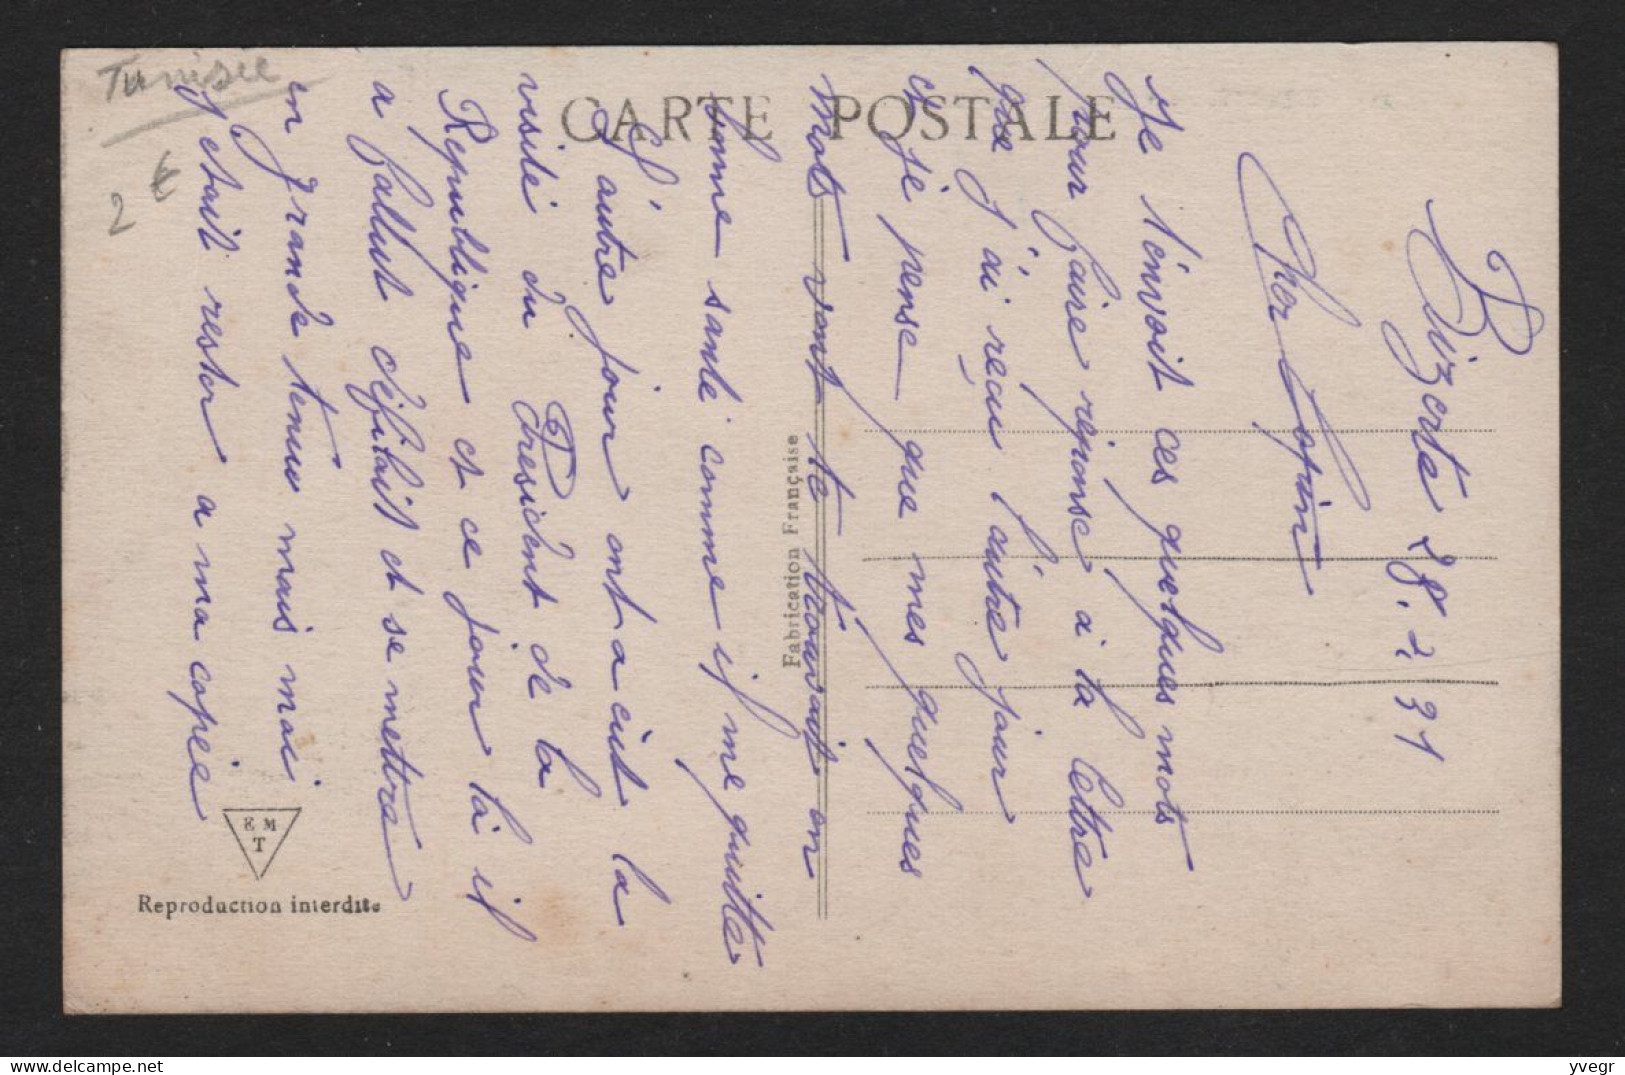 Tunisie
2 €
CARTE POSTALE
Bizerte 28.2.31
Cher Copin
Je t'envoit ces quelques mots
pour faire reponse à la lettre
que j'ai reçu l'autre jour
et je pense que mes quelques
mots vont te trouvait en
bonne santé comme il me quitte
L'autre jour ont a eut la
visite du President de la
Republique et ce jour là il
a fallut défilait et se mettre
en grande tenue mais moi
j'etait rester a ma copie
Fabrication Française
E M
T
Reproduction interdite
yvegr